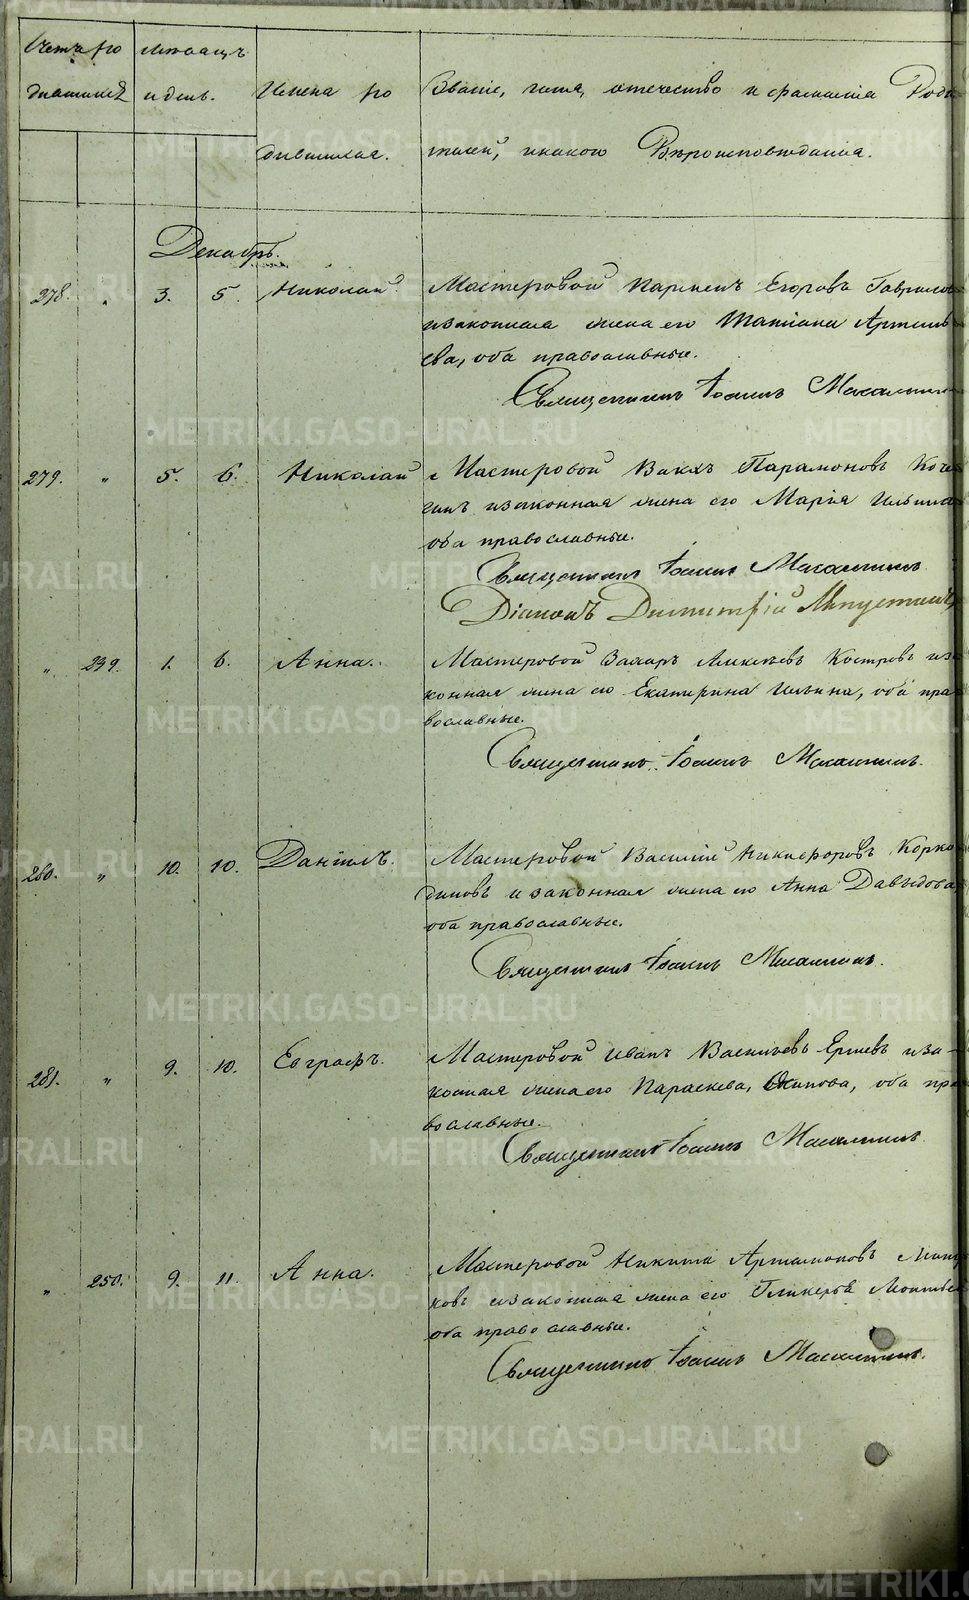 Счетъ ро
дившихся
Мѣсяцъ
и день.
Имена ро
дившихся.
Званіе, имя, отечество и фамилія Роди
телей, и какого Вѣроисповѣданія.
Декабрь.
278. " 3. 5. Николай. Мастеровой Парменъ Егоровъ Гаврилов
и законная жена его Татіана Артемь
ева, оба православные.
Священникъ Іоаннъ
279. " 5. 6. Николай Мастеровой Вакхъ Парамоновъ
гинъ и законная жена его Марія Ильина
оба православные.
Священникъ Іоаннъ
Діаконъ Димитрій
" 249. 1. 6. Анна. Мастеровой Захаръ Алексѣевъ Костровъ и за
конная жена его Екатерина Ильина, оба пра
вославные.
Священникъ Іоаннъ
280. " 10. 10. Даніилъ. Мастеровой Василій Никифоровъ Корко
диновъ и законная жена его Анна Давыдова,
оба православные.
Священникъ Іоаннъ
281. " 9. 10. Евграфъ. Мастеровой Иванъ Васильевъ Ершевъ и за-
конная жена его Параскева Осипова, оба пра
вославные.
Священникъ Іоаннъ
" 250. 9. 11. Анна. Мастеровой Никита Артамоновъ
ковъ и законная жена его Гликерья Леонтье
оба православные.
Священникъ Іоаннъ
METRIKI.GASO-URAL.RU